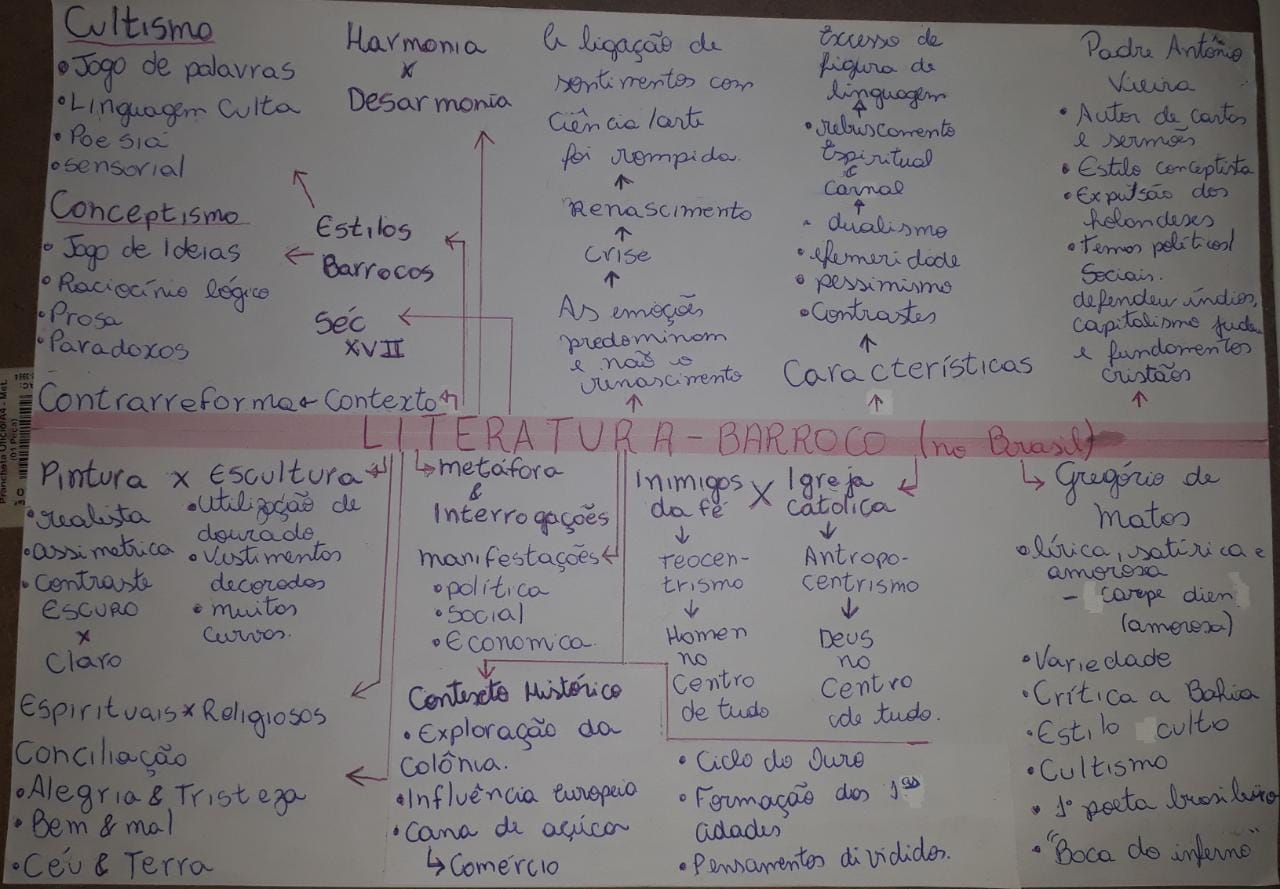 Cultismo
• Jogo de palavras
• Linguagem Culta
• Poesia
• sensorial
Conceptismo
• Jogo de Ideias
• Raciocínio lógico
• Prosa
• Paradoxos
Harmonia
x
Desarmonia
Estilos
Barrocos
Séc
XVII
Contrarreforma ← Contexto
A ligação de
sentimentos com
Ciência/arte
foi rompida.
↑
Renascimento
↑
Crise
↑
As emoções
predominam
e não o
renascimento
Excesso de
figura de
linguagem
• rebuscamento
Espiritual
e
Carnal
- dualismo
• efemeridade
• pessimismo
• Contrastes
Características
Padre Antônio
Vieira
• Autor de cartas
e sermões
• Estilo conceptista
• Expulsão dos
holandeses
• temas políticos/
Sociais.
defendeu índios,
capitalismo juda
e fundamentos
cristãos
LITERATURA - BARROCO (no Brasil)
Pintura x Escultura
• realista
• assimetrica
• Contraste
ESCURO
x
Claro
• Utilização de
dourado
• Vestimentos
decorados
• muitos
curvos.
Espirituais x Religiosos
Conciliação
• Alegria & Tristeza
• Bem & mal
• Céu & Terra
metáfora
&
Interrogações
manifestações
• política
• Social
• Economica.
Contexto Histórico
• Exploração da
Colônia.
• Influência Europeia
• Cana de açúcar
↳ Comércio
Inimigos
da fé
x
Igreja
católica
↓
Teocen-
trismo
↓
Homen
no
Centro
de tudo
↓
Antropo-
centrismo
↓
Deus
no
Centro
de tudo.
• Ciclo do Ouro
• Formação dos 1ªs
cidades
• Pensamentos divididos.
Gregório de
Matos
• lírica, satírica e
amorosa
- Carpe dien
(amorosa)
• Variedade
• Crítica a Bahia
• Estilo culto
• Cultismo
• 1º poeta brasileiro
• "Boca do inferno"